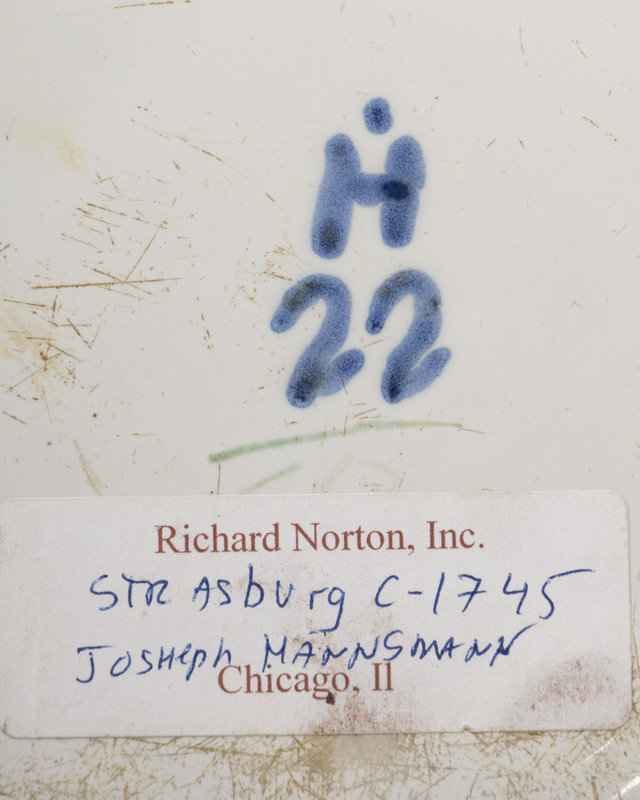 Ḣ
22
Richard Norton, Inc.
STRASburg C-1745
JOSHeph MANNSMANN
Chicago, Il